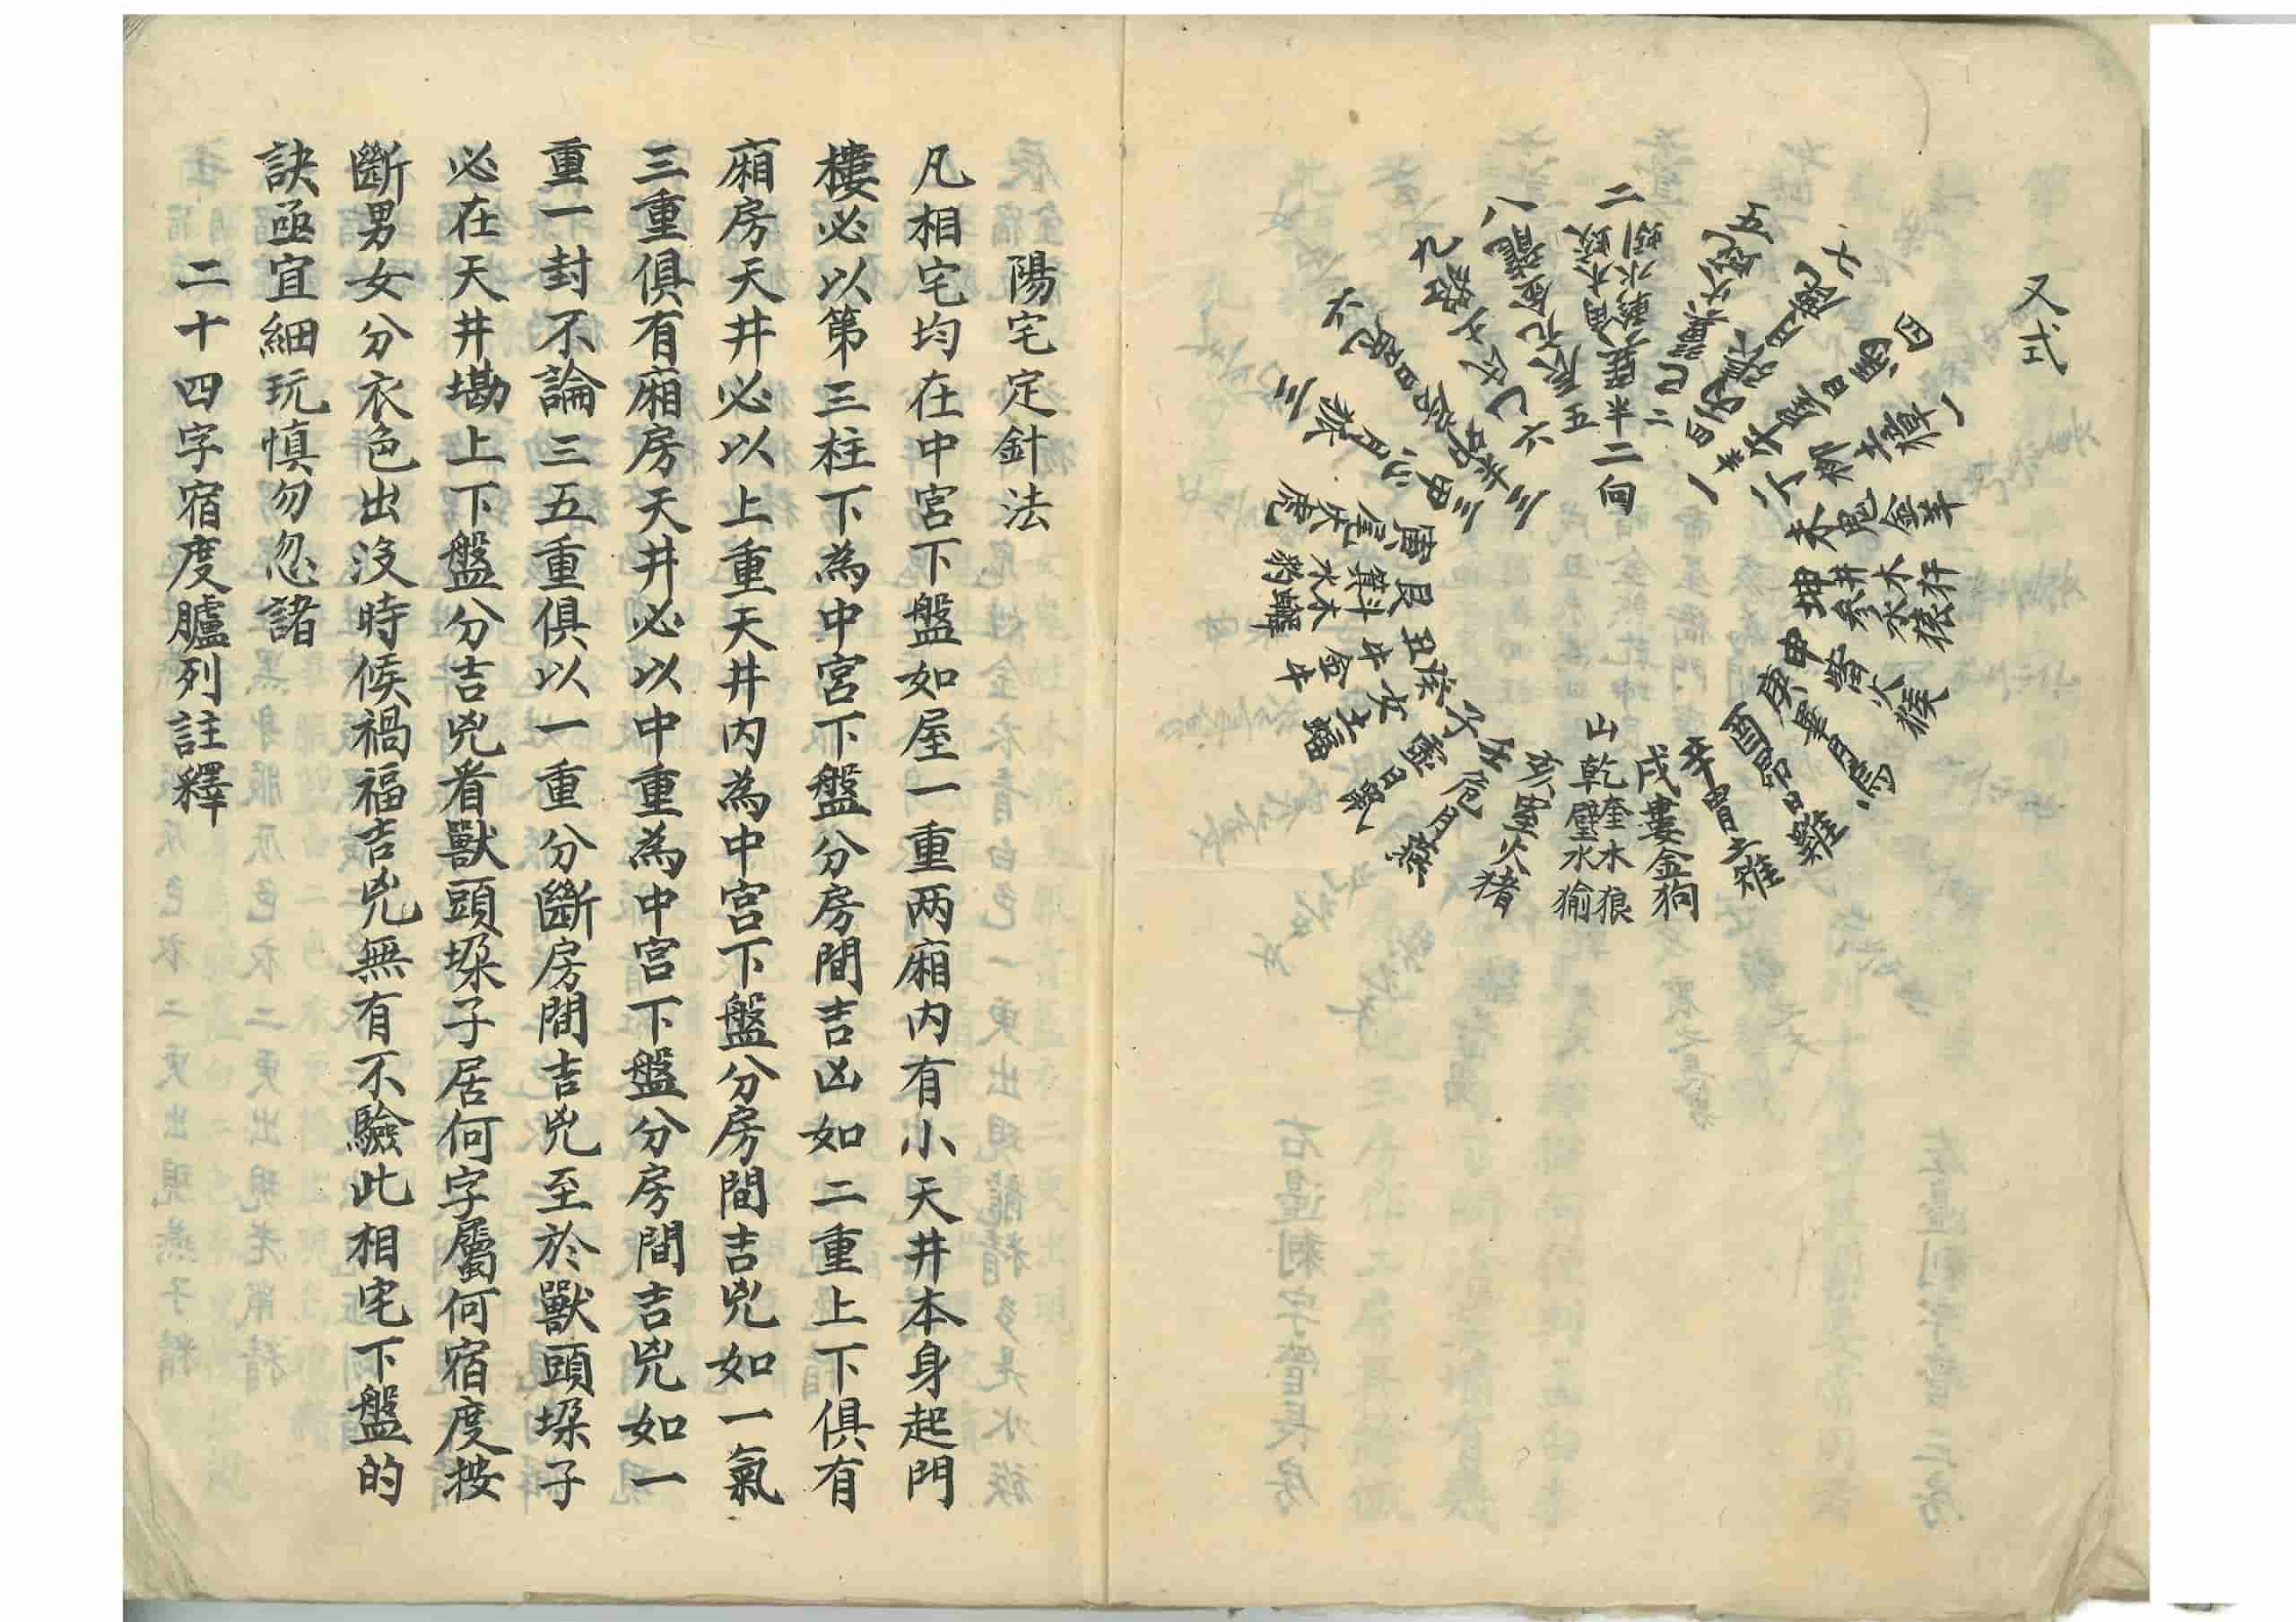 又式
二
八
九
六
三
五
七
四
一
角木蛟
軫水蚓
亢金龍
翼火蛇
張月鹿
星日馬
鬼金羊
井木犴
參水猿
觜火猴
畢月烏
昴日雞
胃土雉
婁金狗
奎木狼
壁水㺄
室火猪
危月燕
虛日鼠
女土蝠
牛金牛
斗木蟹
箕水豹
尾火虎
山
乾
亥
壬
子
癸
丑
艮
寅
甲
辰
巽
未
坤
申
庚
酉
辛
戌
五半二
二向
陽宅定針法
凡相宅均在中宮下盤如屋一重两廂内有小天井本身起門
樓必以第三柱下為中宮下盤分房間吉凶如二重上下俱有
廂房天井必以上重天井内為中宮下盤分房間吉兇如一氣
三重俱有廂房天井必以中重為中宮下盤分房間吉兇如一
重一封不論三五重俱以一重分斷房間吉兇至於獸頭垜子
必在天井墈上下盤分吉兇看獸頭垜子居何字屬何宿度按
斷男女分衣色出沒時候禍福吉兇無有不驗此相宅下盤的
訣亟宜細玩慎勿忽諸
二十四字宿度臚列註釋